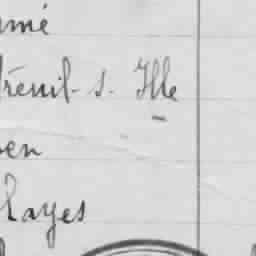 umé
treuil-s-Ille
en
hayes